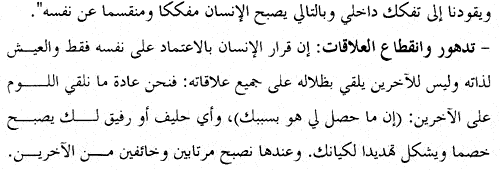 ويقودنا إلى تفكك داخلي وبالتالي يصبح الإنسان مفككا ومنقسما عن نفسه".
– تدهور وانقطاع العلاقات: إن قرار الإنسان بالاعتماد على نفسه فقط والعيش
لذاته وليس للآخرين يلقي بظلاله على جميع علاقاته: فنحن عادة ما نلقي اللـــوم
على الآخرين: (إن ما حصل لي هو بسببك)، وأي حليف أو رفيق لـــك يصبـــح
خصما ويشكل تهديدا لكيانك. وعندها نصبح مرتابين وخائفين مـــن الآخريـــن.